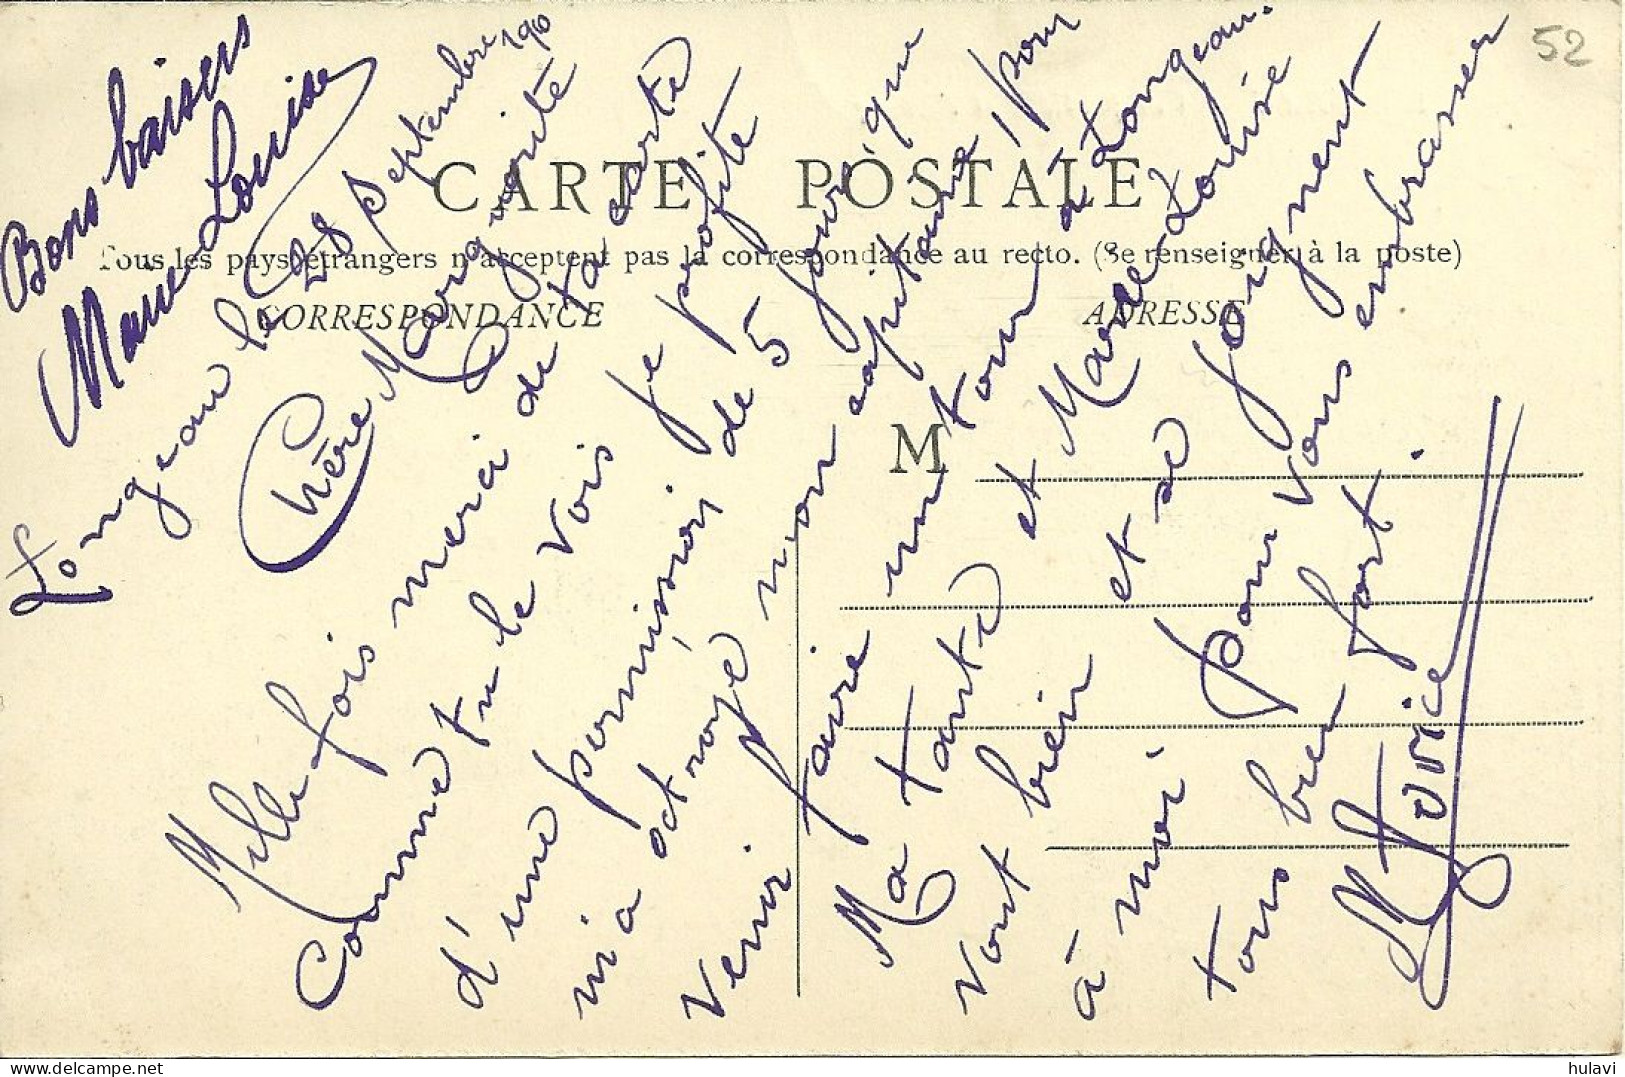 52
Bons baisers
Marie Louise
CARTE POSTALE
Tous les pays étrangers n'acceptent pas la correspondance au recto. (Se renseigner à la poste)
CORRESPONDANCE
ADRESSE
M
Longeau le 28 Septembre 190
Chère Marguerite
Mille fois merci de ta carte
Comme tu le vois je profite
d'une permission de 5 jours que
m'a octroyé mon capitaine, pour
venir faire un tour à Longeau.
Ma tante et Marie Louise
vont bien et se joignent
à moi pour vous embrasser
tous bien fort.
hulavi